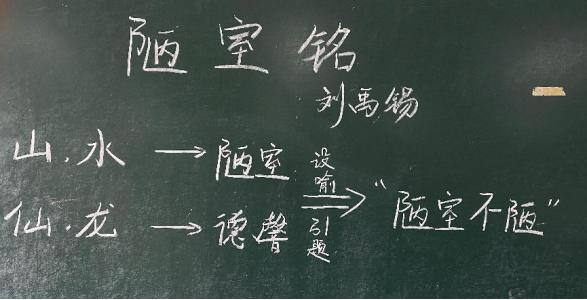 陋室铭
刘禹锡
山.水 → 陋室 设喻 ⇒ "陋室不陋"
仙.龙 → 德馨 引题